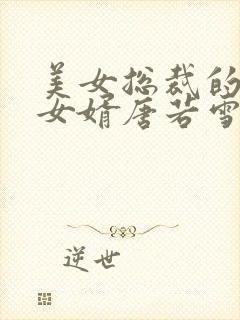 美女总裁的
女婿唐若雪
逆世